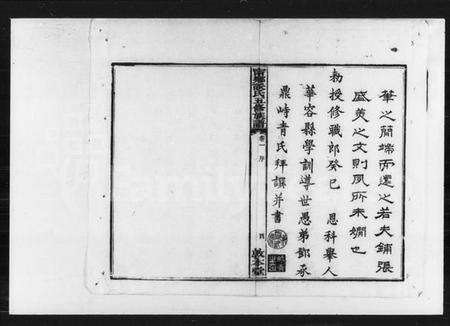 筆之簡端而還之若夫鋪張
盛美之文則夙所未嫻也
敕授修職郎癸巳 恩科舉人
華容縣學訓導世愚弟鄧承
鼎峙青氏拜譔并書
氏五修族譜
卷一 序
敦本堂